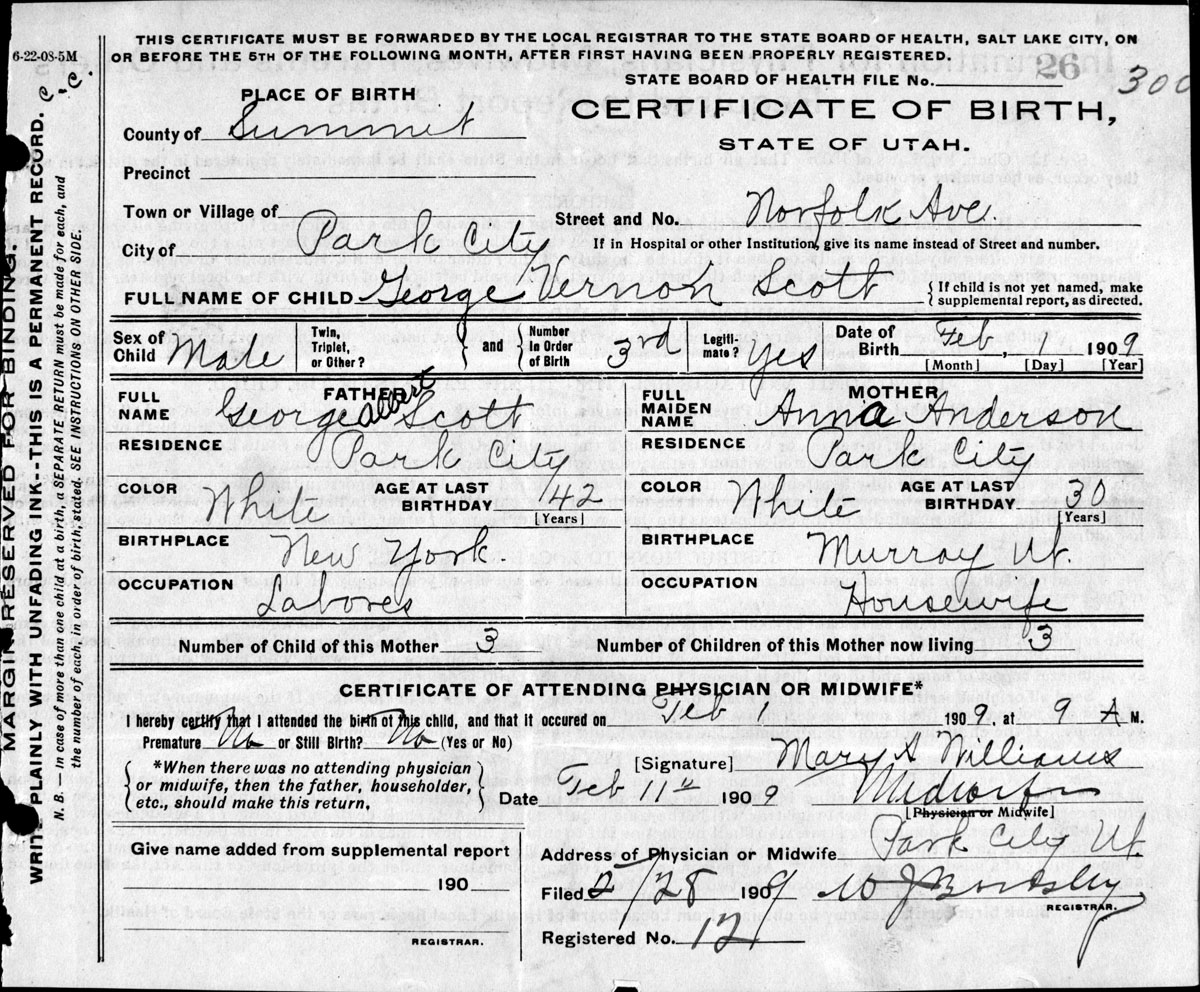 THIS CERTIFICATE MUST BE FORWARDED BY THE LOCAL REGISTRAR TO THE STATE BOARD OF HEALTH, SALT LAKE CITY, ON
OR BEFORE THE 5TH OF THE FOLLOWING MONTH, AFTER FIRST HAVING BEEN PROPERLY REGISTERED.
6-22-08-5M
STATE BOARD OF HEALTH FILE No.
26
300
MARGIN RESERVED FOR BINDING
WRITE PLAINLY WITH UNFADING INK--THIS IS A PERMANENT RECORD.
N. B. — In case of more than one child at a birth, a SEPARATE RETURN must be made for each, and
the number of each, in order of birth, stated. SEE INSTRUCTIONS ON OTHER SIDE.
PLACE OF BIRTH
CERTIFICATE OF BIRTH,
STATE OF UTAH.
County of Summit
Precinct
Town or Village of
Street and No. Norfolk Ave.
City of Park City
If in Hospital or other Institution, give its name instead of Street and number.
FULL NAME OF CHILD George Vernon Scott
If child is not yet named, make
supplemental report, as directed.
Sex of Child Male
Twin, Triplet, or Other?
and
Number in Order of Birth 3rd
Legiti-mate? Yes
Date of Birth Feb 1, 1909
[Month] [Day] [Year]
FATHER
FULL NAME George Albert Scott
MOTHER
FULL MAIDEN NAME Anna Anderson
RESIDENCE Park City
RESIDENCE Park City
COLOR White
AGE AT LAST BIRTHDAY 42
[Years]
COLOR White
AGE AT LAST BIRTHDAY 30
[Years]
BIRTHPLACE New York.
BIRTHPLACE Murray Ut.
OCCUPATION Laborer
OCCUPATION Housewife
Number of Child of this Mother 3
Number of Children of this Mother now living 3
CERTIFICATE OF ATTENDING PHYSICIAN OR MIDWIFE*
I hereby certify that I attended the birth of this child, and that it occured on Feb 1 1909, at 9 A M.
Premature No or Still Birth? No (Yes or No)
*When there was no attending physician
or midwife, then the father, householder,
etc., should make this return,
[Signature] Mary A Williams
Date Feb 11th 1909
Midwife
[Physician or Midwife]
Give name added from supplemental report
190
REGISTRAR.
Address of Physician or Midwife Park City Ut.
Filed 2/28 1909
REGISTRAR.
Registered No. 12